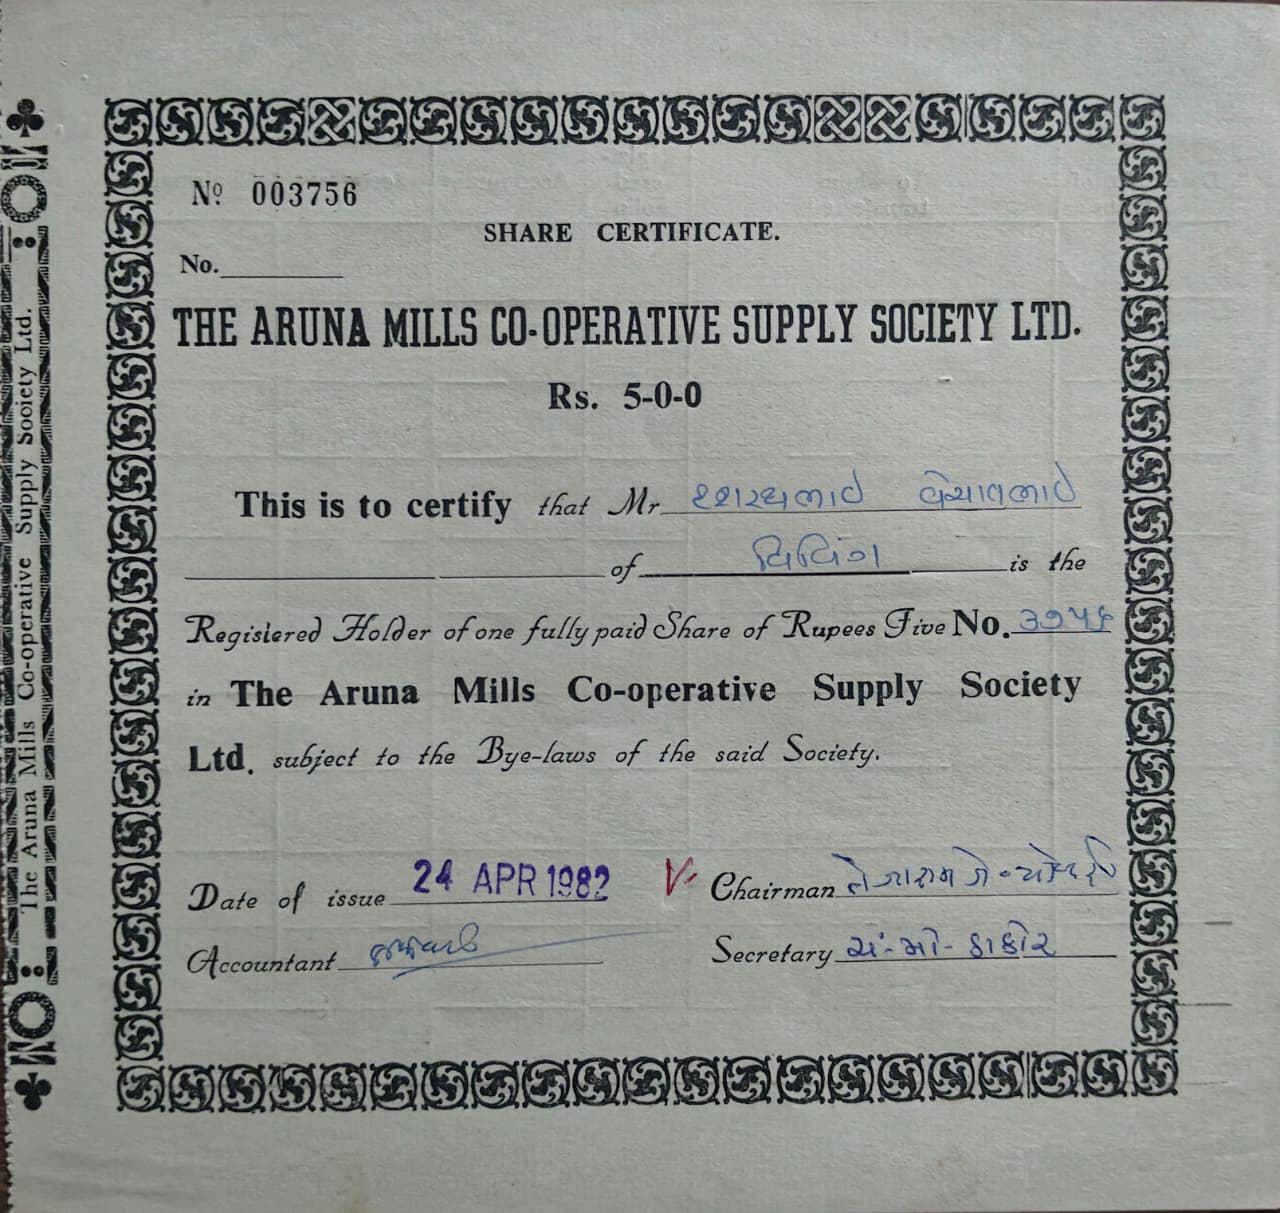 The Aruna Mills Co-operative Supply Society Ltd.
Nº 003756
SHARE CERTIFICATE.
No.
THE ARUNA MILLS CO-OPERATIVE SUPPLY SOCIETY LTD.
Rs. 5-0-0
This is to certify that Mr દશરથભાઇ વેચાતભાઇ
of વિવિંગ is the
Registered Holder of one fully paid Share of Rupees Five No. ૩૭૫૬
in The Aruna Mills Co-operative Supply Society
Ltd. subject to the Bye-laws of the said Society.
Date of issue 24 APR 1982 Chairman
Accountant Secretary